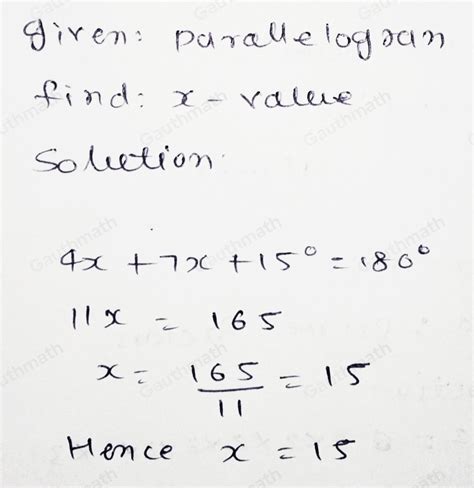 given: parallelogram
find: x - value
Solution:
4x + 7x + 15° = 180°
11x = 165
x = 165/11 = 15
Hence x = 15